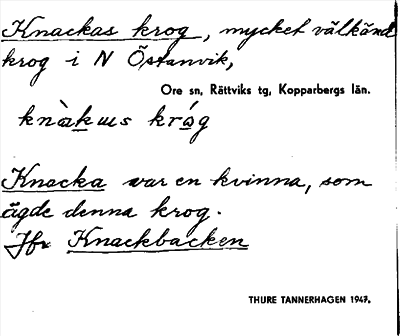 Knackas krog, mycket välkänd
krog i N Östanvik,
Ore sn, Rättviks tg, Kopparbergs län.
knàkus krǻg
Knacka var en kvinna, som
ägde denna krog.
Jfr Knackbacken
THURE TANNERHAGEN 1947.